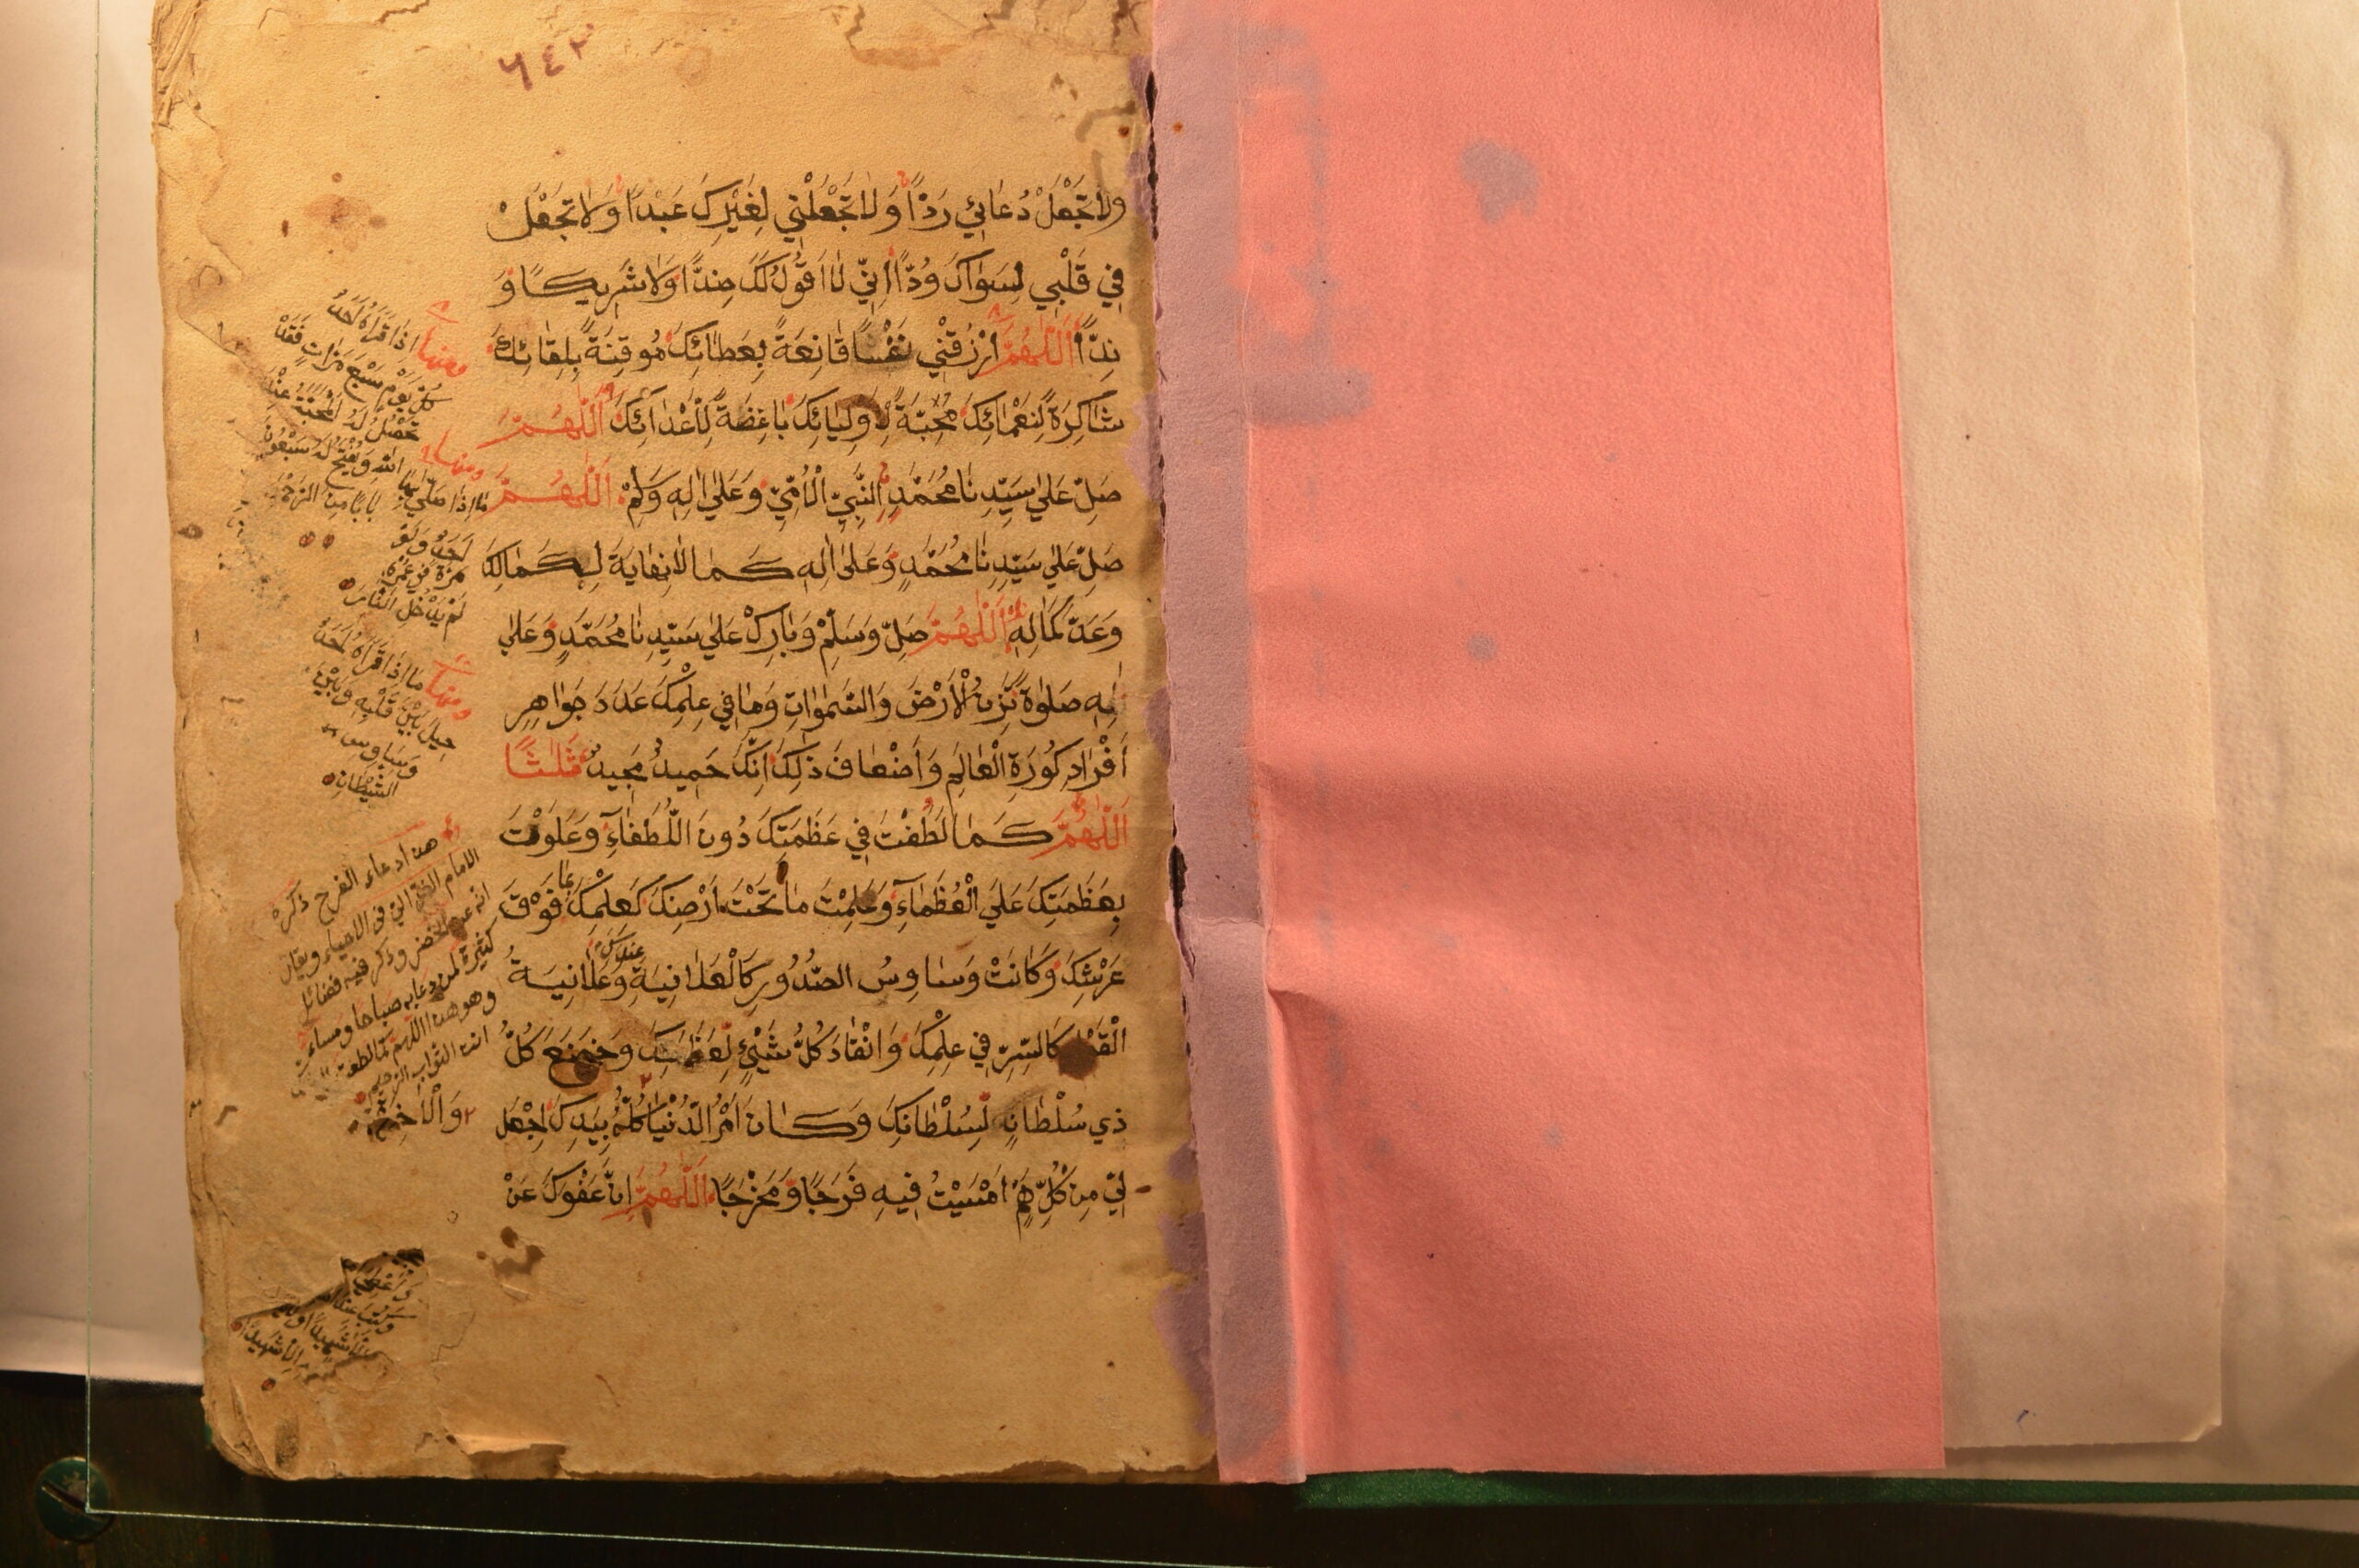 ٦٤٣
وَلَا تَجْعَلْ دُعَائِي رَدًّا وَلَا تَجْعَلْنِي لِغَيْرِكَ عَبْدًا وَلَا تَجْعَلْ
فِي قَلْبِي لِسَوَاكَ وُدًّا اِنِّي لَا اَقُولُ لَكَ ضِدًّا وَلَا شَرِيكًا وَ
نِدًّا اَللّٰهُمَّ ارْزُقْنِي نَفْسًا قَانِعَةً بِعَطَائِكَ مُوقِنَةً بِلِقَائِكَ
شَاكِرَةً لِنَعْمَائِكَ مُحِبَّةً لِاَوْلِيَائِكَ بَاغِضَةً لِاَعْدَائِكَ اَللّٰهُمَّ
صَلِّ عَلٰي سَيِّدِنَا مُحَمَّدٍ النَّبِيِّ الْاُمِّيِّ وَعَلٰي اٰلِهِ وَسَلِّمْ اَللّٰهُمَّ
صَلِّ عَلٰي سَيِّدِنَا مُحَمَّدٍ وَعَلٰى اٰلِهِ كَمَا لَا نِهَايَةَ لِكَمَالِكَ
وَعَدَّ كَمَالِهِ اَللّٰهُمَّ صَلِّ وَسَلِّمْ وَبَارِكْ عَلٰي سَيِّدِنَا مُحَمَّدٍ وَعَلٰي
اٰلِهِ صَلٰوةً تَزِنُ الْاَرْضَ وَالسَّمٰوَاتِ وَمَا فِي عِلْمِكَ عَدَدَ جَوَاهِرِ
أَفْرَادِ كُورَةِ الْعَالَمِ وَأَضْعَافَ ذٰلِكَ اِنَّكَ حَمِيدٌ مَجِيدٌ ثَلٰثًا
اَللّٰهُمَّ كَمَا لَطُفْتَ فِي عَظَمَتِكَ دُونَ اللُّطَفَاءِ وَعَلَوْتَ
بِعَظَمَتِكَ عَلَي الْعُظَمَاءِ وَعَلِمْتَ مَا تَحْتَ اَرْضِكَ كَعِلْمِكَ بِمَا فَوْقَ
عَرْشِكَ وَكَانَتْ وَسَاوِسُ الصُّدُورِ كَالْعَلَانِيَةِ عِنْدَكَ وَعَلَانِيَةُ
الْقَوْلِ كَالسِّرِّ فِي عِلْمِكَ وَانْقَادَ كُلُّ شَيْئٍ لِعَظَمَتِكَ وَخَضَعَ كُلُّ
ذِي سُلْطَانٍ لِسُلْطَانِكَ وَكَانَ اَمْرُ الدُّنْيَا كُلُّهُ بِيَدِكَ اِجْعَلْ
لِي مِنْ كُلِّ هَمٍّ اَمْسَيْتُ فِيهِ فَرَجًا وَمَخْرَجًا اَللّٰهُمَّ اِنَّ عَفْوَكَ عَنْ
ومنها اِذَا قَرَاَهُ اَحَدٌ
كُلَّ يَوْمٍ سَبْعَ مَرَّاتٍ فَقَدْ
تَحْصُلُ لَهُ الْمَحَبَّةُ عِنْدَ
اللّٰهِ وَيُفْتَحُ لَهُ سَبْعُونَ
بَابًا مِنَ الرَّحْمَةِ
ومنها
مَا اِذَا صَلَّي بِهَا
اَحَدٌ وَلَوْ
مَرَّةً فِي عُمْرِهِ
لَمْ يَدْخُلِ النَّارَ
ومنها مَا اِذَا قَرَاَهُ اَحَدٌ
حِيلَ بَيْنَ قَلْبِهِ وَبَيْنَ
وَسَاوِسِ
الشَّيْطَانِ
هذا دعاء الفرج ذكره
الامام الغزالي في الاحياء ويقال
انه عن الخضر وذكر فيه فضائل
كثيرة لمن دعا به صباحا ومساء
وهو هذا اللهم كما لطفت
انت التواب الرحيم
وَالْاٰخِرَةِ